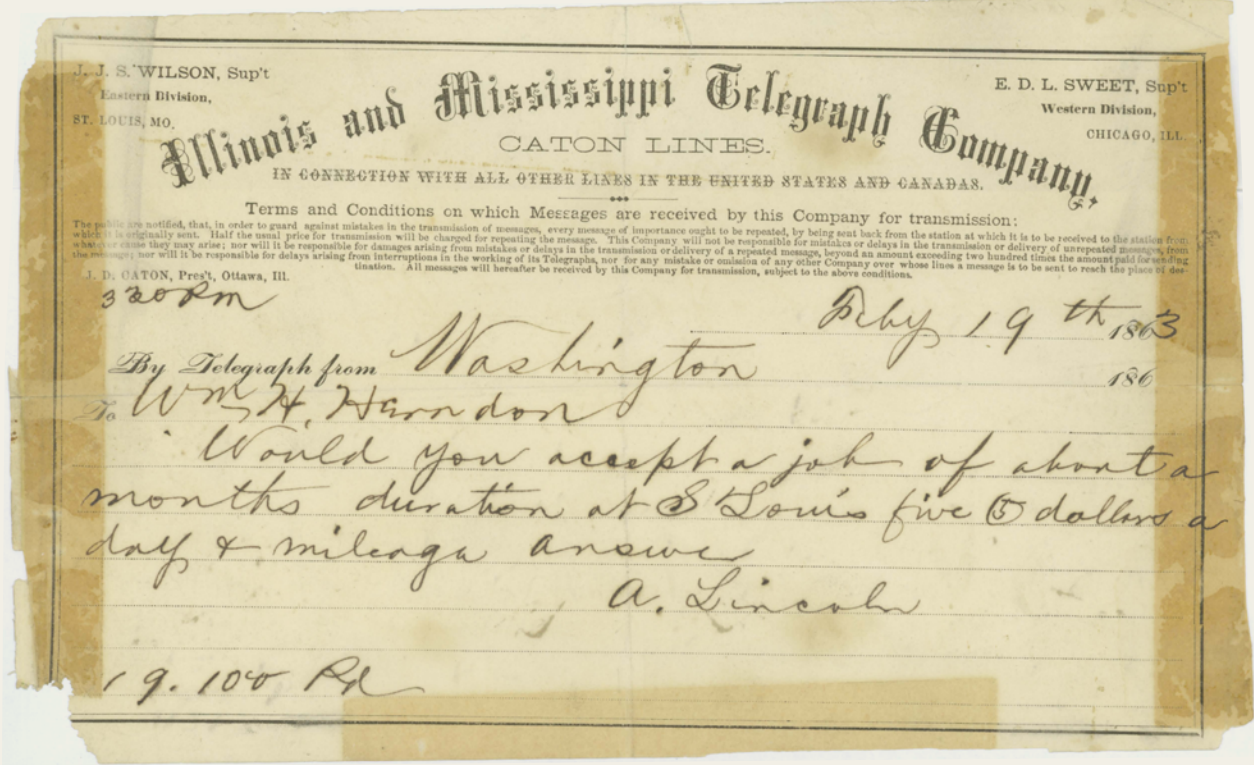 J. J. S. WILSON, Sup't
Eastern Division,
ST. LOUIS, MO.
E. D. L. SWEET, Sup't
Western Division,
CHICAGO, ILL
Illinois and Mississippi Telegraph Company,
CATON LINES.
IN CONNECTION WITH ALL OTHER LINES IN THE UNITED STATES AND CANADAS.
Terms and Conditions on which Messages are received by this Company for transmission:
The public are notified, that, in order to guard against mistakes in the transmission of messages, every message of importance ought to be repeated, by being sent back from the station at which it is to be received to the station from
which it is originally sent. Half the usual price for transmission will be charged for repeating the message. This Company will not be responsible for mistakes or delays in the transmission or delivery of unrepeated messages, from
whatever cause they may arise; nor will it be responsible for damages arising from mistakes or delays in the transmission or delivery of a repeated message, beyond an amount exceeding two hundred times the amount paid for sending
the message; nor will it be responsible for delays arising from interruptions in the working of its Telegraphs, nor for any mistake or omission of any other Company over whose lines a message is to be sent to reach the place of des-
tination. All messages will hereafter be received by this Company for transmission, subject to the above conditions.
J. D. CATON, Pres't, Ottawa, Ill.
3 20 Pm
Feby 19th 1863
By Telegraph from Washington 186
To Wm H. Harndon
Would you accept a job of about a
months duration at St Louis five (5) dollars a
day & mileage answer
A. Lincoln
19. 100 Pd